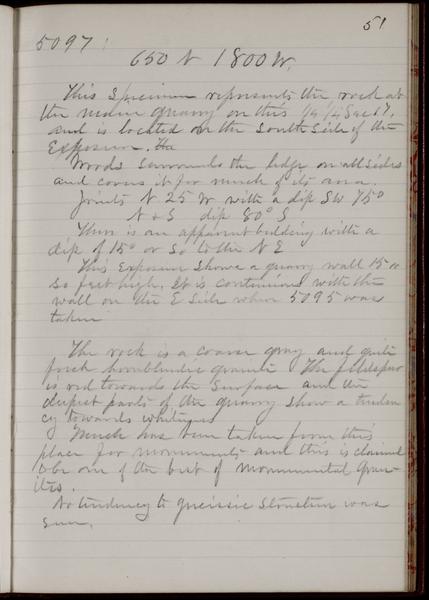 51
5097:
650 N 1800 W.
This specimen represents the rock at
the quarry on this 1/4 1/4 Sec 17,
and is located on the South side of the
Exposure. The
Woods surrounds the ledge on all sides
and covers it for much of its area.
Joints N 25 W with a dip SW 75°
N & S dip 80° S
There is an apparent bedding with a
dip of 15° or so to the N E
This exposure shows a quarry wall 15 or
so feet high. It is continuous with the
wall on the E side where 5095 was
taken
The rock is a coarse gray and quite
fresh hornblendic granite The feldspar
is red towards the surface and the
deepest parts of the quarry show a tenden
cy towards whiteness
Much has been taken from this
place for monuments and this is claimed
to be one of the best of monumental gran-
ites.
No tendency to gneissic structure was
seen.